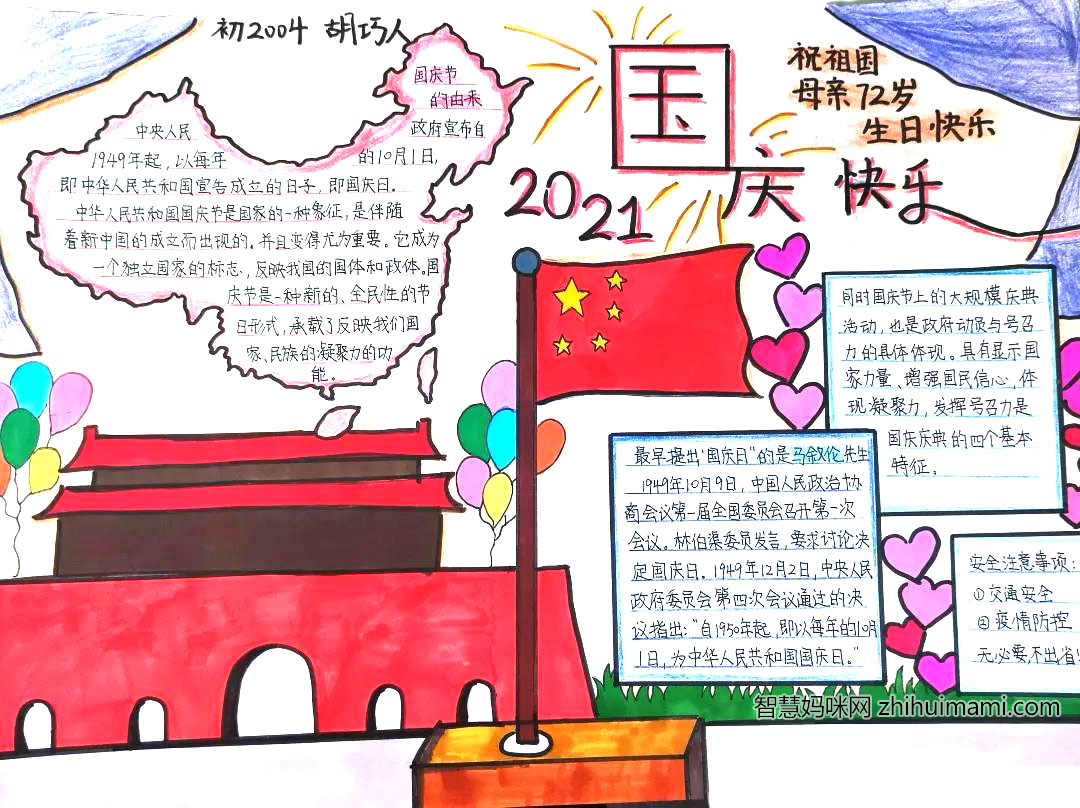 初2004 胡巧人
国庆节
的由来
中央人民
政府宣布自
1949年起,以每年
的10月1日,
即中华人民共和国宣告成立的日子,即国庆日.
中华人民共和国国庆节是国家的一种象征,是伴随
着新中国的成立而出现的.并且变得尤为重要。它成为
一个独立国家的标志,反映我国的国体和政体.国
庆节是一种新的、全民性的节
日形式,承载了反映我们国
家、民族的凝聚力的功
能。
祝祖国
母亲72岁
生日快乐
国
庆 快乐
2021
同时国庆节上的大规模庆典
活动,也是政府动员与号召
力的具体体现。具有显示国
家力量、增强国民信心,体
现凝聚力,发挥号召力是
国庆庆典的四个基本
特征。
最早提出“国庆日”的是马叙伦先生
1949年10月9日,中国人民政治协
商会议第一届全国委员会召开第一次
会议。林伯渠委员发言,要求讨论决
定国庆日.1949年12月2日,中央人民
政府委员会第四次会议通过的决
议指出:“自1950年起,即以每年的10月
1日,为中华人民共和国国庆日。”
安全注意事项:
①交通安全
②疫情防控
无必要,不出省!
智慧妈咪网 zhihuimami.com